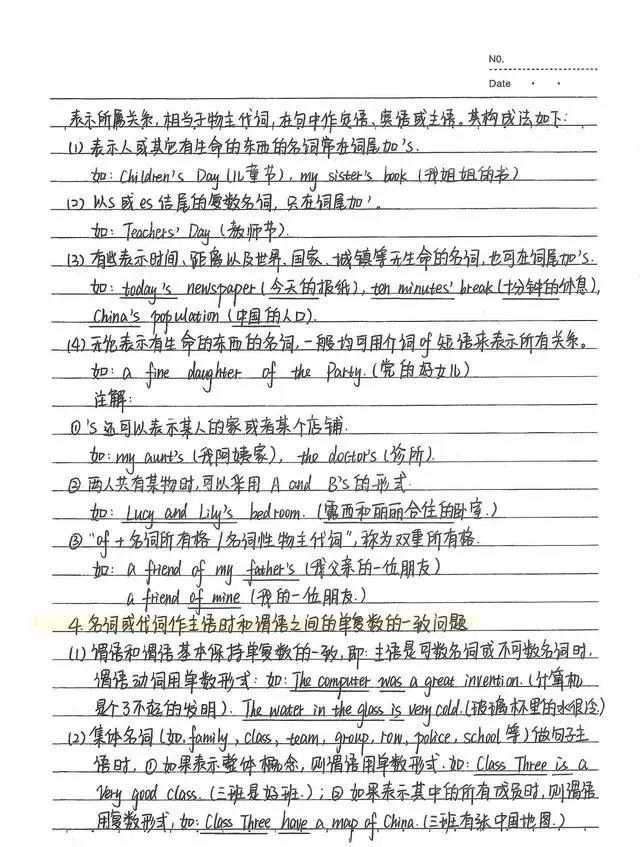 NO.
Date
表示所属关系,相当于物主代词,在句中作定语、宾语或主语。其构成法如下:
(1) 表示人或其它有生命的东西的名词常在词尾加's.
如: Children's Day (儿童节), my sister's book (我姐姐的书)
(2) 以s 或es 结尾的复数名词,只在词尾加'.
如: Teachers' Day (教师节).
(3) 有些表示时间、距离以及世界、国家、城镇等无生命的名词,也可在词尾加's.
如: today's newspaper (今天的报纸), ten minutes' break (十分钟的休息),
China's population (中国的人口).
(4) 无论表示有生命的东西的名词,一般均可用介词of 短语来表示所有关系。
如: a fine daughter of the Party. (党的好女儿)
注解:
①'s 还可以表示某人的家或者某个店铺.
如: my aunt's (我阿姨家), the doctor's (诊所).
② 两人共有某物时,可以采用 A and B's的形式.
如: Lucy and Lily's bedroom. (露西和丽丽合住的卧室.)
③ "of + 名词所有格 / 名词性物主代词", 称为双重所有格.
如: a friend of my father's (我父亲的一位朋友)
a friend of mine (我的一位朋友.)
4. 名词或代词作主语时和谓语之间的单复数的一致问题
(1) 谓语和谓语基本保持单复数的一致,即:主语是可数名词或不可数名词时,
谓语动词用单数形式: 如: The computer was a great invention. (计算机
是个了不起的发明). The water in the glass is very cold. (玻璃杯里的水很冷)
(2) 集体名词 (如, family, class, team, group, row, police, school 等) 做句子主
语时, ①如果表示整体概念, 则谓语用单数形式. 如: Class Three is a
very good class. (三班是好班.) ; ②如果表示其中的所有成员时, 则谓语
用复数形式, 如: Class Three have a map of China. (三班有张中国地图.)